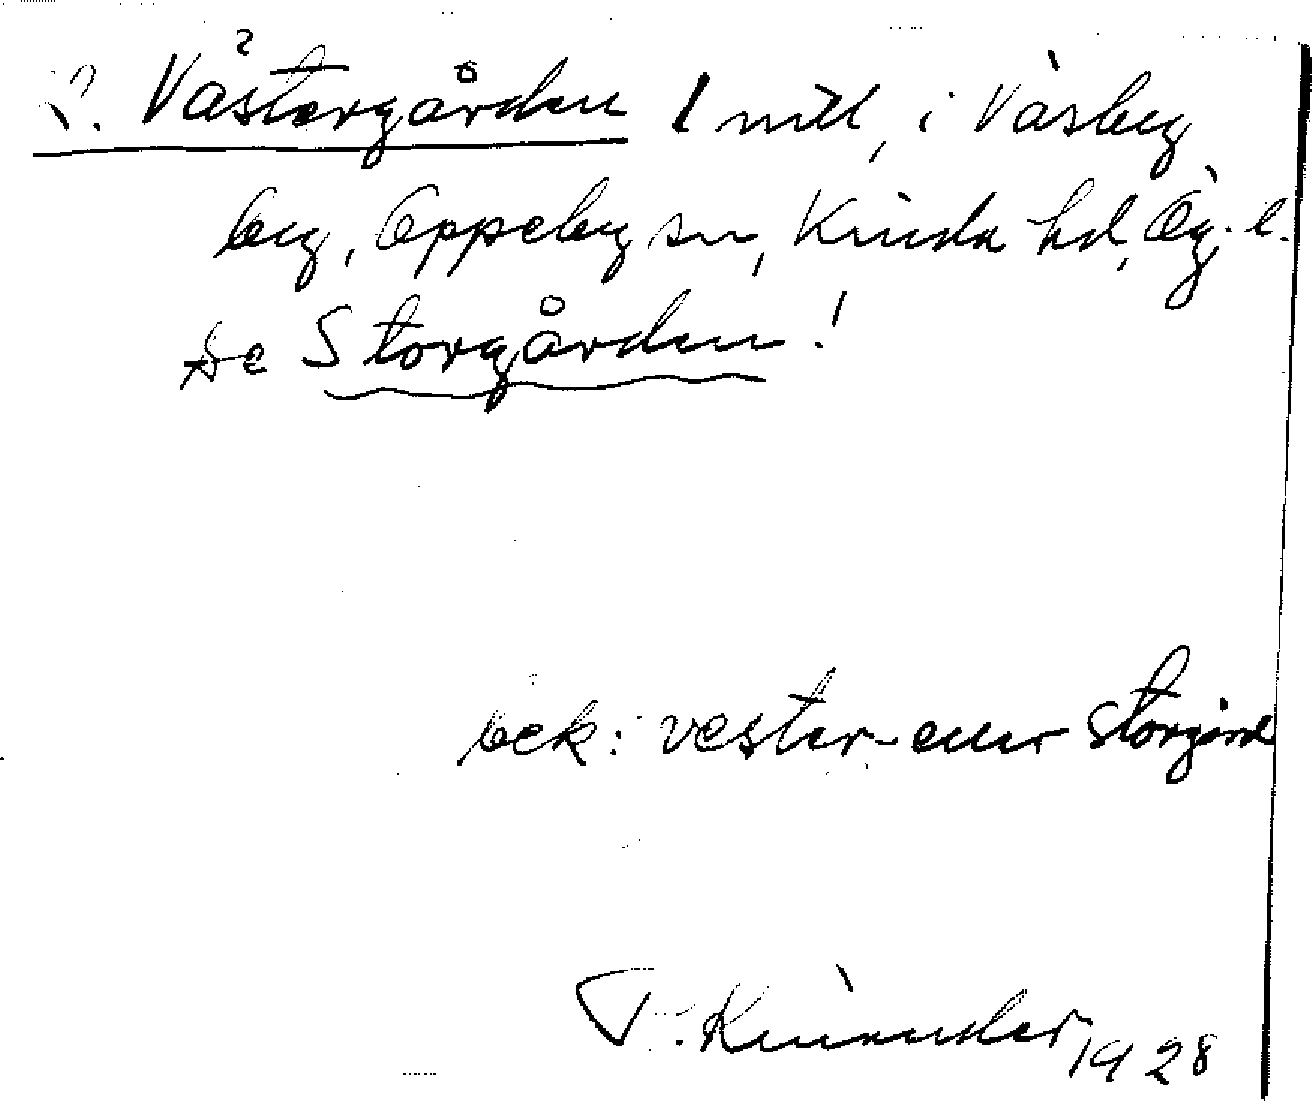 ?. Västergården 1 mtl, iVäsby
by, Oppeby sn, Kinda hd, Ög. l.
Se Storgården!
bek: vester- eller storgård
T. Kinander 1928